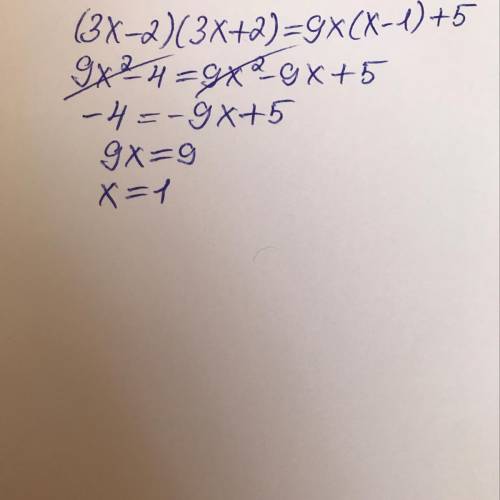 (3x-2)(3x+2)=9x(x-1)+5
9x²-4=9x²-9x+5
-4=-9x+5
9x=9
x=1